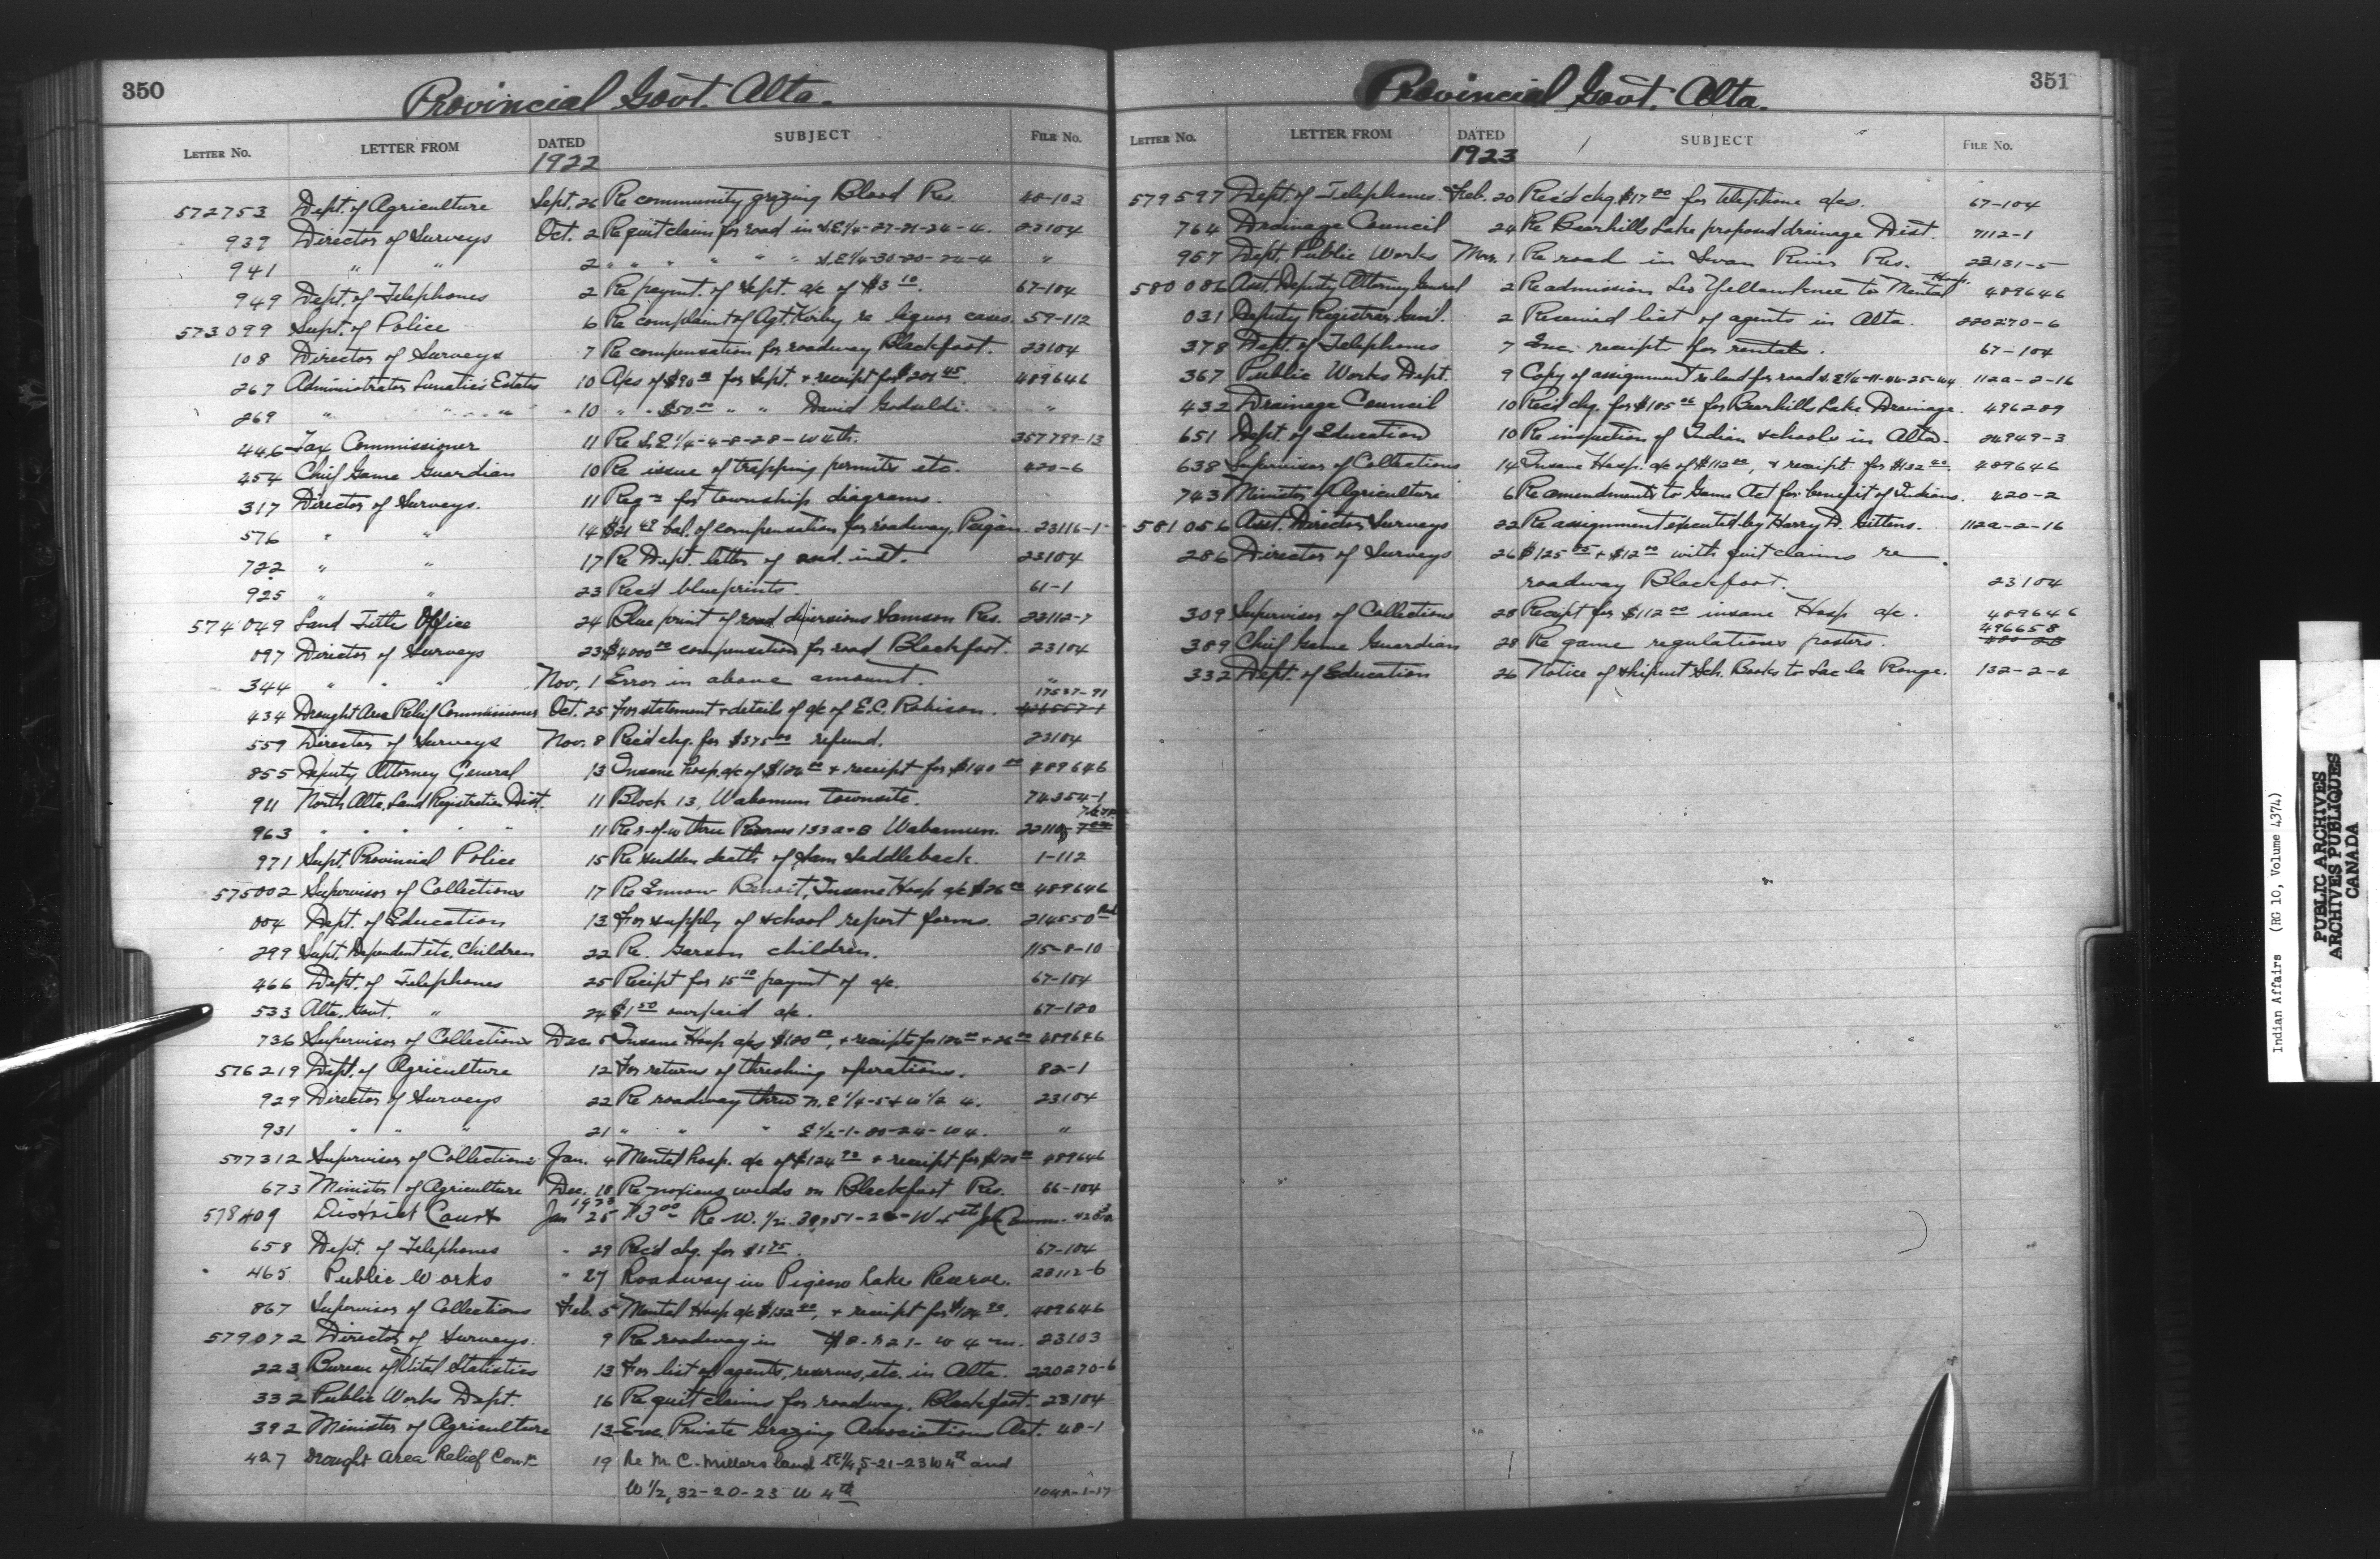 350
Provincial Govt. Alta.
LETTER NO. LETTER FROM DATED SUBJECT FILE No.
1922
572753 Dept. of Agriculture Sept. 26 Re community grazing Blood Res. 48-103
937 Director of Surveys Oct. 2 Re quit claim for road in S.E1/4-27-21-24-4. 23104
941 " " 2 " " " " " " S.E1/4-30-20-24-4 "
949 Dept. of Telephones 2 Re paymt. of Sept. a/c of $3 10. 67-104
573099 Supt. of Police 6 Re complaint of Agt. Kirby re liquor cases. 59-112
108 Director of Surveys 7 Re compensation for roadway Blackfoot. 23104
267 Administrator Lunatics Estates 10 A/cs of $90 for Sept. & receipt for $ 45. 489646
269 " " " " 10 " " $50 00 " " David 		"
446 Tax Commissioner 11 Re S.E1/4-4-8-28-W4th. 357799-13
454 Chief Game Guardian 10 Re issue of trapping permits etc. 420-6
317 Director of Surveys. 11 Reqn for township diagrams.
576 " " 14 $21 49 bal. of compensation for roadway, Peigan 23116-1
722 " " 17 Re Dept. letter of 2nd. inst. 23104
925 " " 23 Rec'd blueprints. 61-1
574049 Land Title Office 24 Blue print of road diversions Samson Res. 22112-7
097 Director of Surveys 23 $4000 00 compensation for road Blackfoot. 23104
344 " " " Nov. 1 Error in above amount. "
434 Drought Area Relief Commissioner Oct. 25 For statement & details of a/c of E.C. Robison. 17537-91
559 Director of Surveys Nov. 8 Rec'd chq. for $375 00 refund. 23104
855 Deputy Attorney General 13 Insane hosp. a/c of $124 00 & receipt for $140 00 489646
911 North Alta. Land Registration Dist. 11 Block 13, Wabamun townsite. 74354-1
963 " " " " " 11 Re r-of-w thru Reserves 133a & B Wabamun.
971 Supt. Provincial Police 15 Re sudden death of Sam Saddleback. 1-112
575002 Supervisor of Collections 17 Re Benoit, Insane Hosp. a/c $26 00 489646
004 Dept. of Education 13 For supply of school report forms. 214550
299 Supt. Dependent etc. Children 22 Re. Garson children. 115-8-10
466 Dept. of Telephones 25 Reciept for 15 10 paymt of a/c. 67-104
533 Alta. Govt. " 24 $1 50 overpaid a/c. 67-120
736 Supervisor of Collections Dec. 5 Insane Hosp. a/cs $120 00, & receipts for 124 00 & 26 00 489646
576219 Dept. of Agriculture 12 For returns of threshing operations. 82-1
929 Director of Surveys 22 Re roadway thru N.E1/4-5 & W1/2 4. 23104
931 " " " 21 " " " E1/2-1-20-24-W4. "
577312 Supervisor of Collections Jan. 4 Mental hosp. a/c of $124 90 & receipt for $120 00 489646
673 Minister of Agriculture Dec. 18 Re noxious weeds on Blackfoot Res. 66-104
578409 District Court Jan 1923 25 $3 00 Re W. 1/2. 51-26-W4th
658 Dept. of Telephones " 29 Rec'd chq. for $1 75. 67-104
465 Public Works " 27 Roadway in Pigeon Lake Reserve. 22112-6
867 Supervisor of Collections Feb. 5 Mental Hosp a/c $132 90, & receipt for $124 90. 489646
579072 Director of Surveys. 9 Re roadway in 8-R21-W4m. 23103
223 Bureau of Vital Statistics 13 For list of agents, reserves, etc. in Alta. 220270-6
332 Public Works Dept. 16 Re quit claims for roadway, Blackfoot. 23104
392 Minister of Agriculture 13 Enc. Private Grazing Associations Act. 48-1
427 Drought Area Relief Com'r 19 Re M.C. Millers land SE1/4, 5-21-23W4th and
W 1/2, 32-20-23 W 4th 104A-1-17
351
Provincial Govt. Alta.
LETTER No. LETTER FROM DATED SUBJECT FILE No.
1923
579597 Dept. of Telephones. Feb. 20 Rec'd chq. $17 20 for telephone a/cs. 67-104
764 Drainage Council 24 Re Bearhills Lake proposed drainage Dist. 7112-1
957 Dept. Public Works Mar. 1 Re road in Swan River Res. 22131-5
580086 Asst. Deputy Attorney General 2 Re admission Leo Yellowknee to Mental Hosp. 489646
031 Deputy Registrar Gen'l. 2 Received list of agents in Alta. 220270-6
378 Dept. of Telephones 7 Enc. receipts for rentals. 67-104
367 Public Works Dept. 9 Copy of assignment re land for road S.E1/4-11-44-25-W4 112a-2-16
432 Drainage Council 10 Rec'd chq. for $185 06 for Bearhills Lake Drainage. 496289
651 Dept. of Education 10 Re inspection of Indian schools in Alta. 24949-3
638 Supervisor of Collections 14 Insane Hosp. a/c of $112 00, & receipt for $132 90. 489646
743 Minister of Agriculture 6 Re amendments to Game Act for benefit of Indians. 420-2
581056 Asst. Director Surveys 22 Re assignment executed by Harry D. Gittens. 112a-2-16
286 Director of Surveys 26 $125 05 & $12 00 with quit claims re
roadway Blackfoot. 23104
309 Supervisor of Collections 28 Receipt for $112 00 insane Hosp a/c. 489646
389 Chief Game Guardian 28 Re game regulations posters. 496658
332 Dept. of Education 26 Notice of shipmt Sch. Books to Lac la Ronge. 132-2-4
Indian Affairs (RG 10, Volume 4374)
PUBLIC ARCHIVES
ARCHIVES PUBLIQUES
CANADA